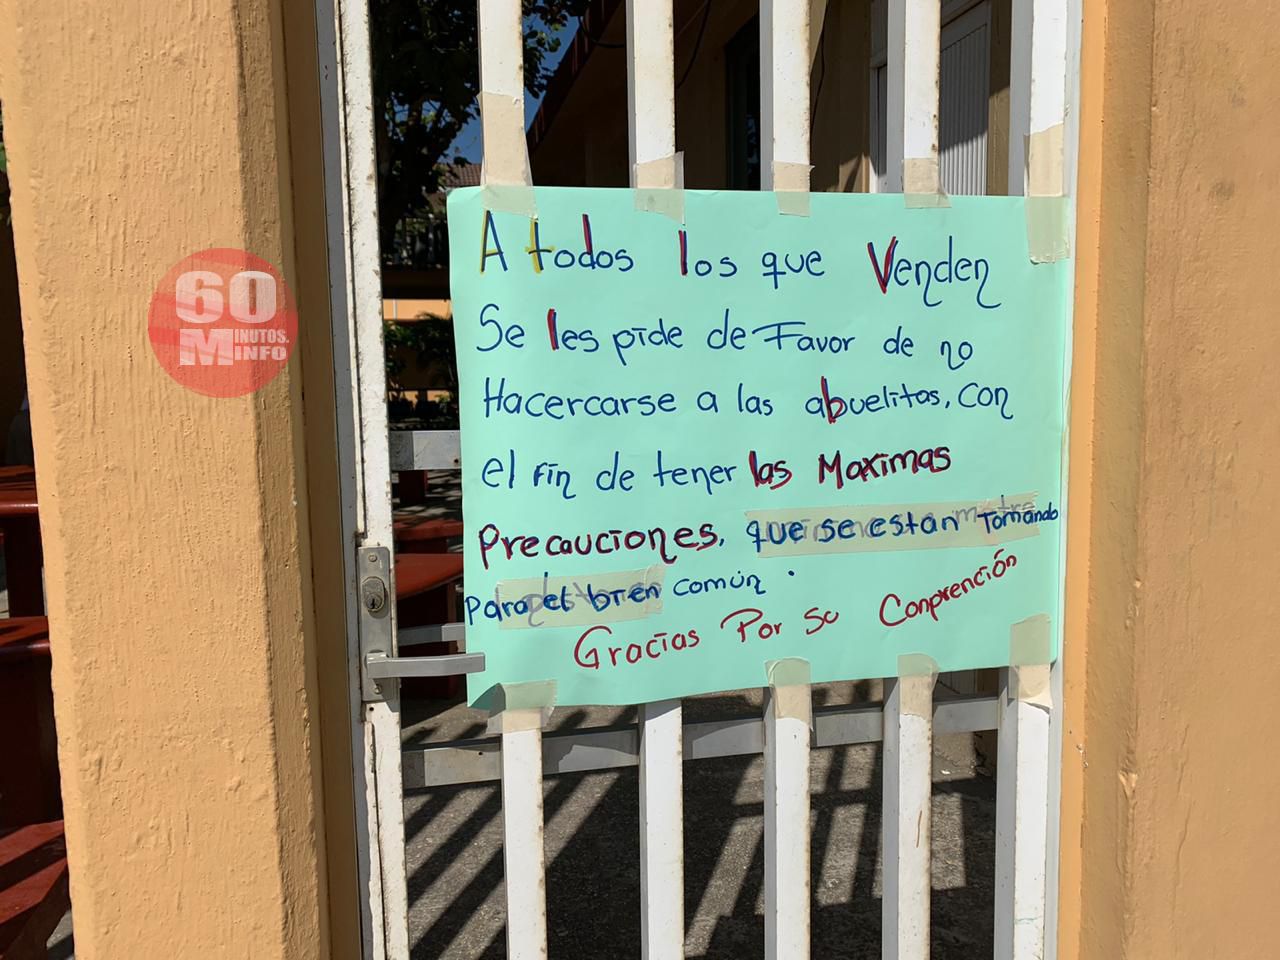 60
MINUTOS.
INFO
A todos los que Venden
Se les pide de Favor de no
Hacercarse a las abuelitas, con
el fin de tener las Maximas
Precauciones, que se estan Tomando
para el bien común.
Gracias Por su Conprención